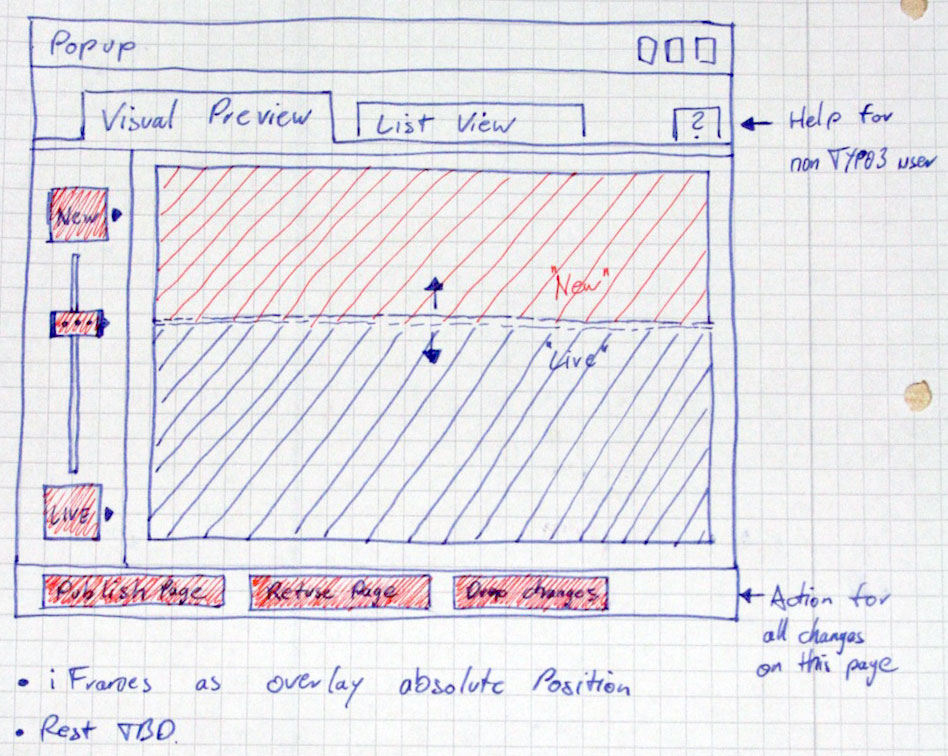 Popup
Visual Preview
List View
?
Help for
non TYPO3 user
New
"New"
"Live"
LIVE
Publish Page
Refuse Page
Drop changes
Action for
all changes
on this page
• iFrames as overlay absolute Position
• Rest TBD.